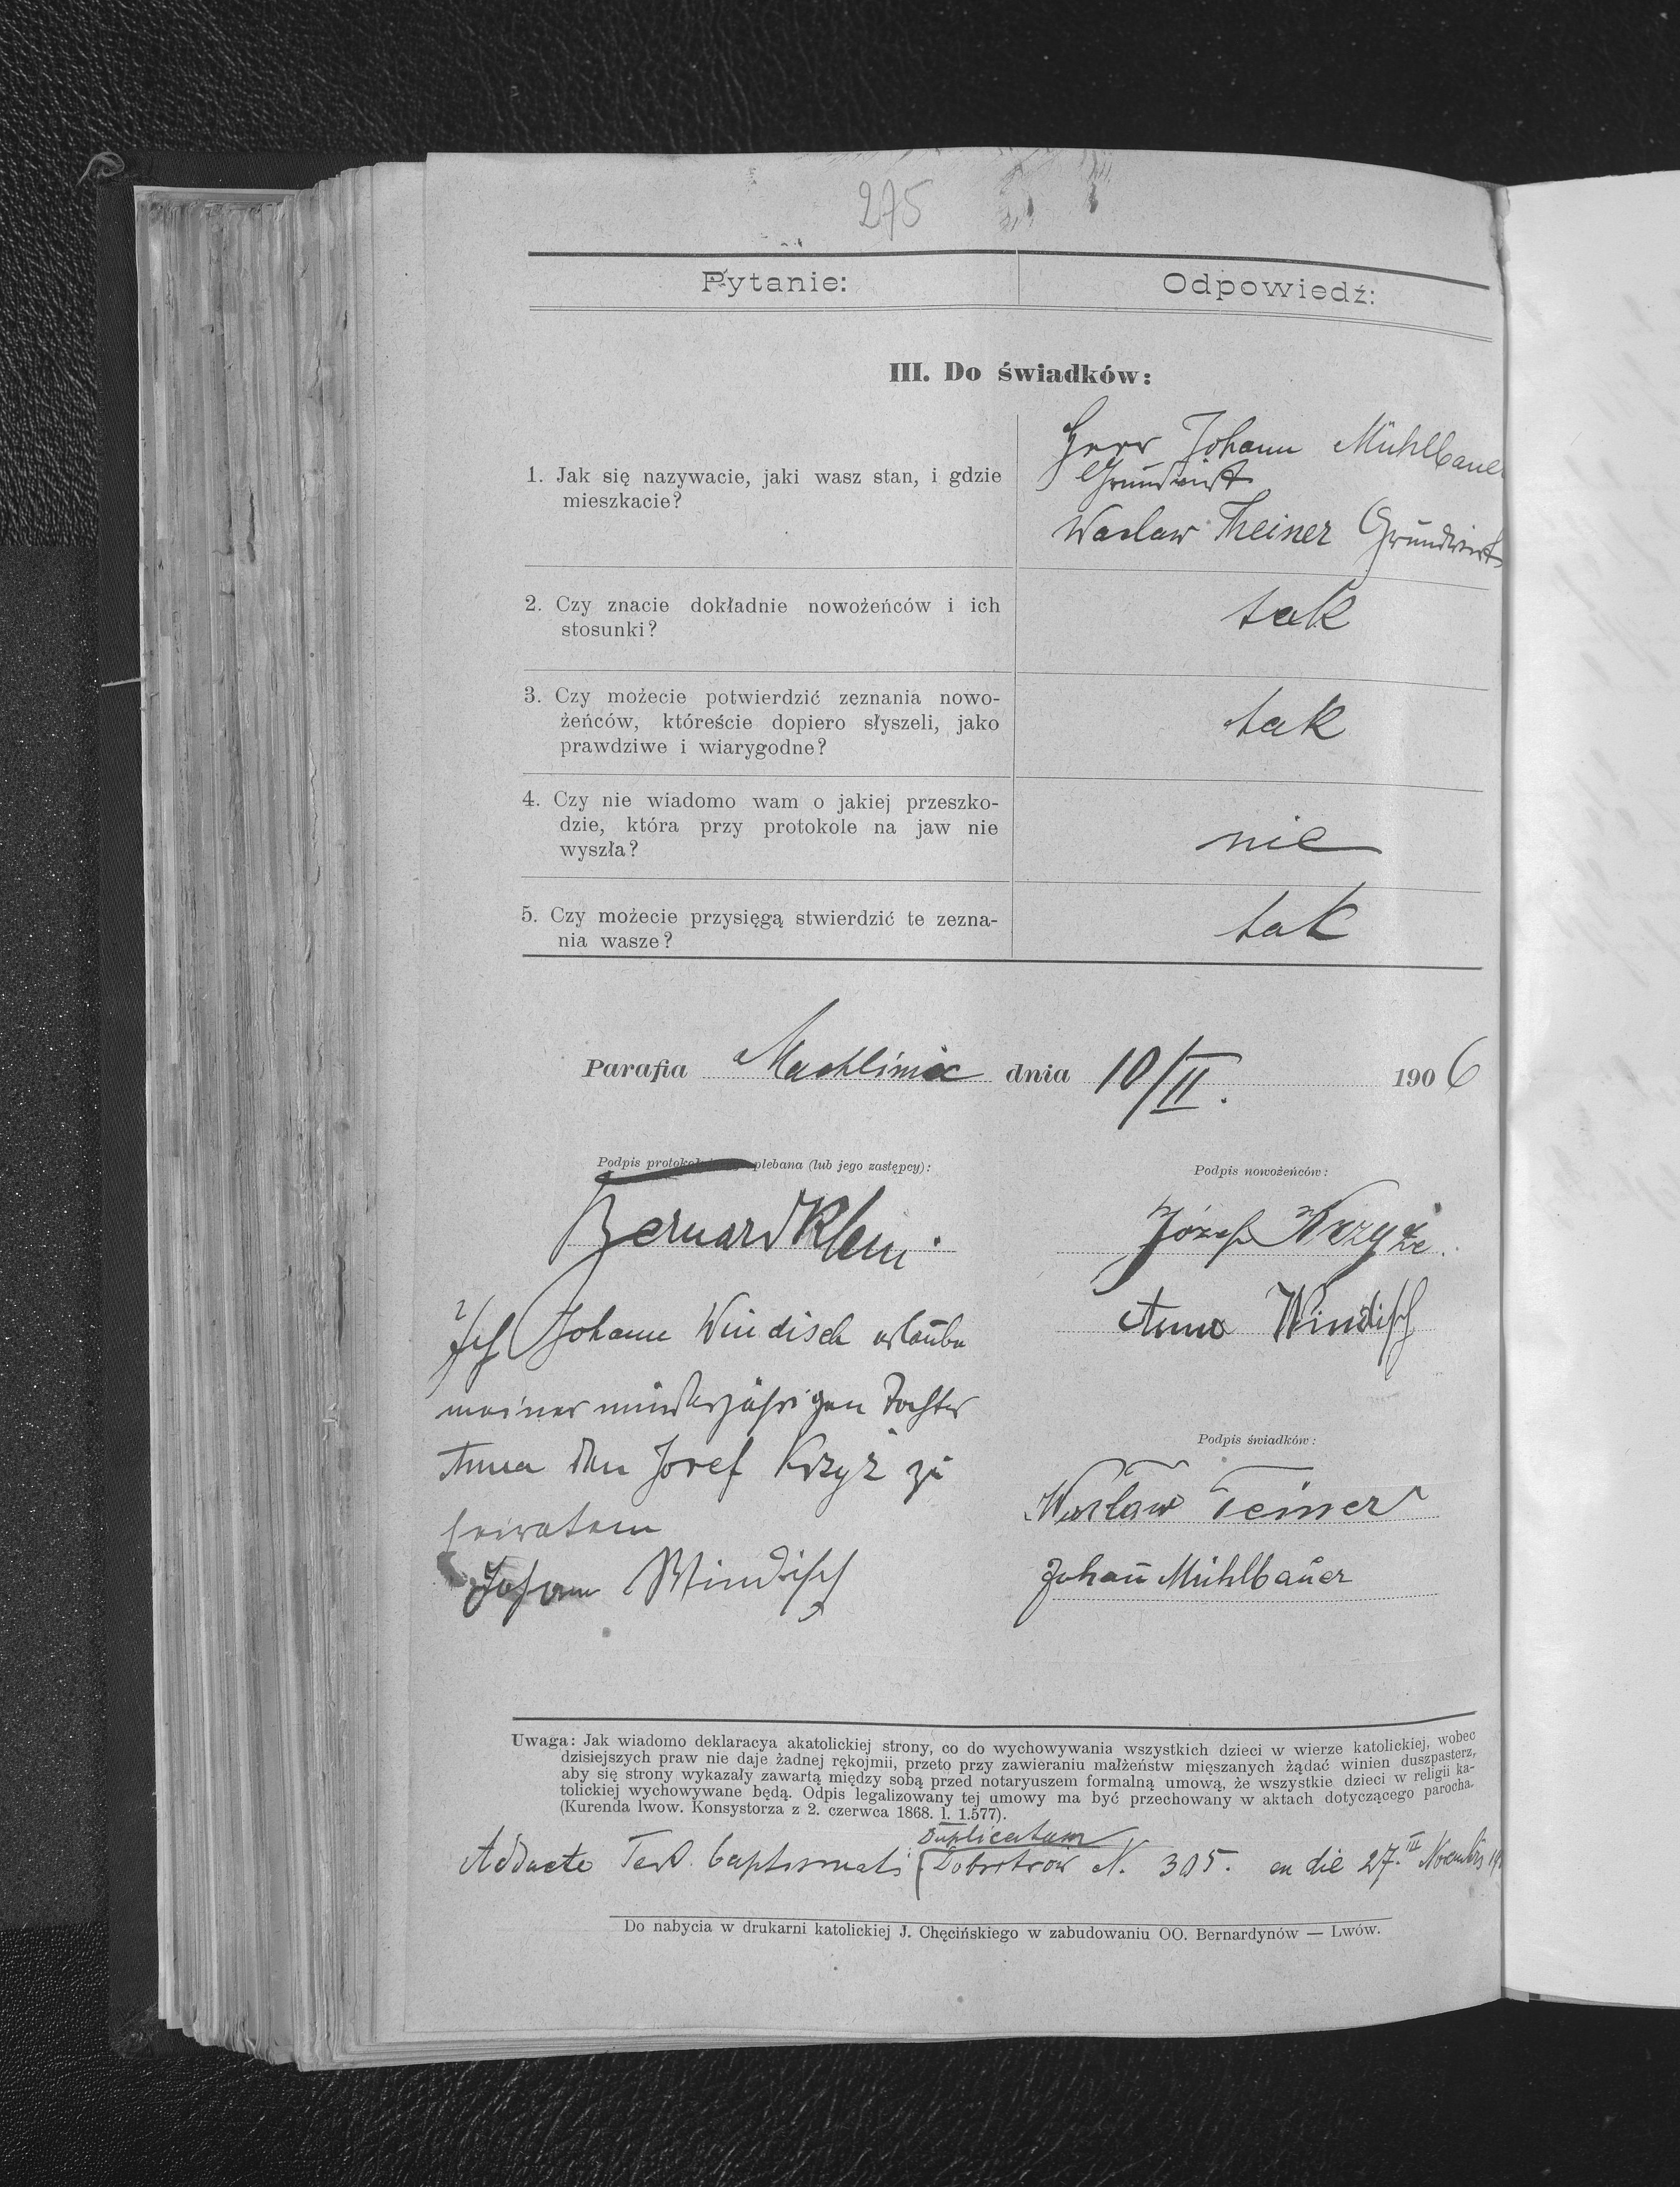 275
Pytanie:
Odpowiedź:
III. Do świadków:
1. Jak się nazywacie, jaki wasz stan, i gdzie
mieszkacie?
Herr Johann Mühlbauer
Grundwirt
Wacław Theiner Grundwirt
2. Czy znacie dokładnie nowożeńców i ich
stosunki?
tak
3. Czy możecie potwierdzić zeznania nowo-
żeńców, któreście dopiero słyszeli, jako
prawdziwe i wiarygodne?
tak
4. Czy nie wiadomo wam o jakiej przeszko-
dzie, która przy protokole na jaw nie
wyszła?
nie
5. Czy możecie przysięgą stwierdzić te zezna-
nia wasze?
tak
Parafia Machliniec dnia 10/II. 1906
Podpis plebana (lub jego zastępcy):
Bernard Klein
Podpis nowożeńców:
Józef Krzyże
Anna Windisch
Ich Johann Windisch erlaube
meiner minderjährigen Tochter
Anna den Josef Krzyż zu
heiraten
Johann Windisch
Podpis świadków:
Wacław Teiner
Johañ Mühlbauer
Uwaga: Jak wiadomo deklaracya akatolickiej strony, co do wychowywania wszystkich dzieci w wierze katolickiej, wobec
dzisiejszych praw nie daje żadnej rękojmii, przeto przy zawieraniu małżeństw mięszanych żądać winien duszpasterz,
aby się strony wykazały zawartą między sobą przed notaryuszem formalną umową, że wszystkie dzieci w religii ka-
tolickiej wychowywane będą. Odpis legalizowany tej umowy ma być przechowany w aktach dotyczącego parocha.
(Kurenda lwow. Konsystorza z 2. czerwca 1868. l. 1.577).
Duplicatum
Adducto Test. baptismati Dobrotwór N. 305. en die 27. Novembris
Do nabycia w drukarni katolickiej J. Chęcińskiego w zabudowaniu OO. Bernardynów — Lwów.